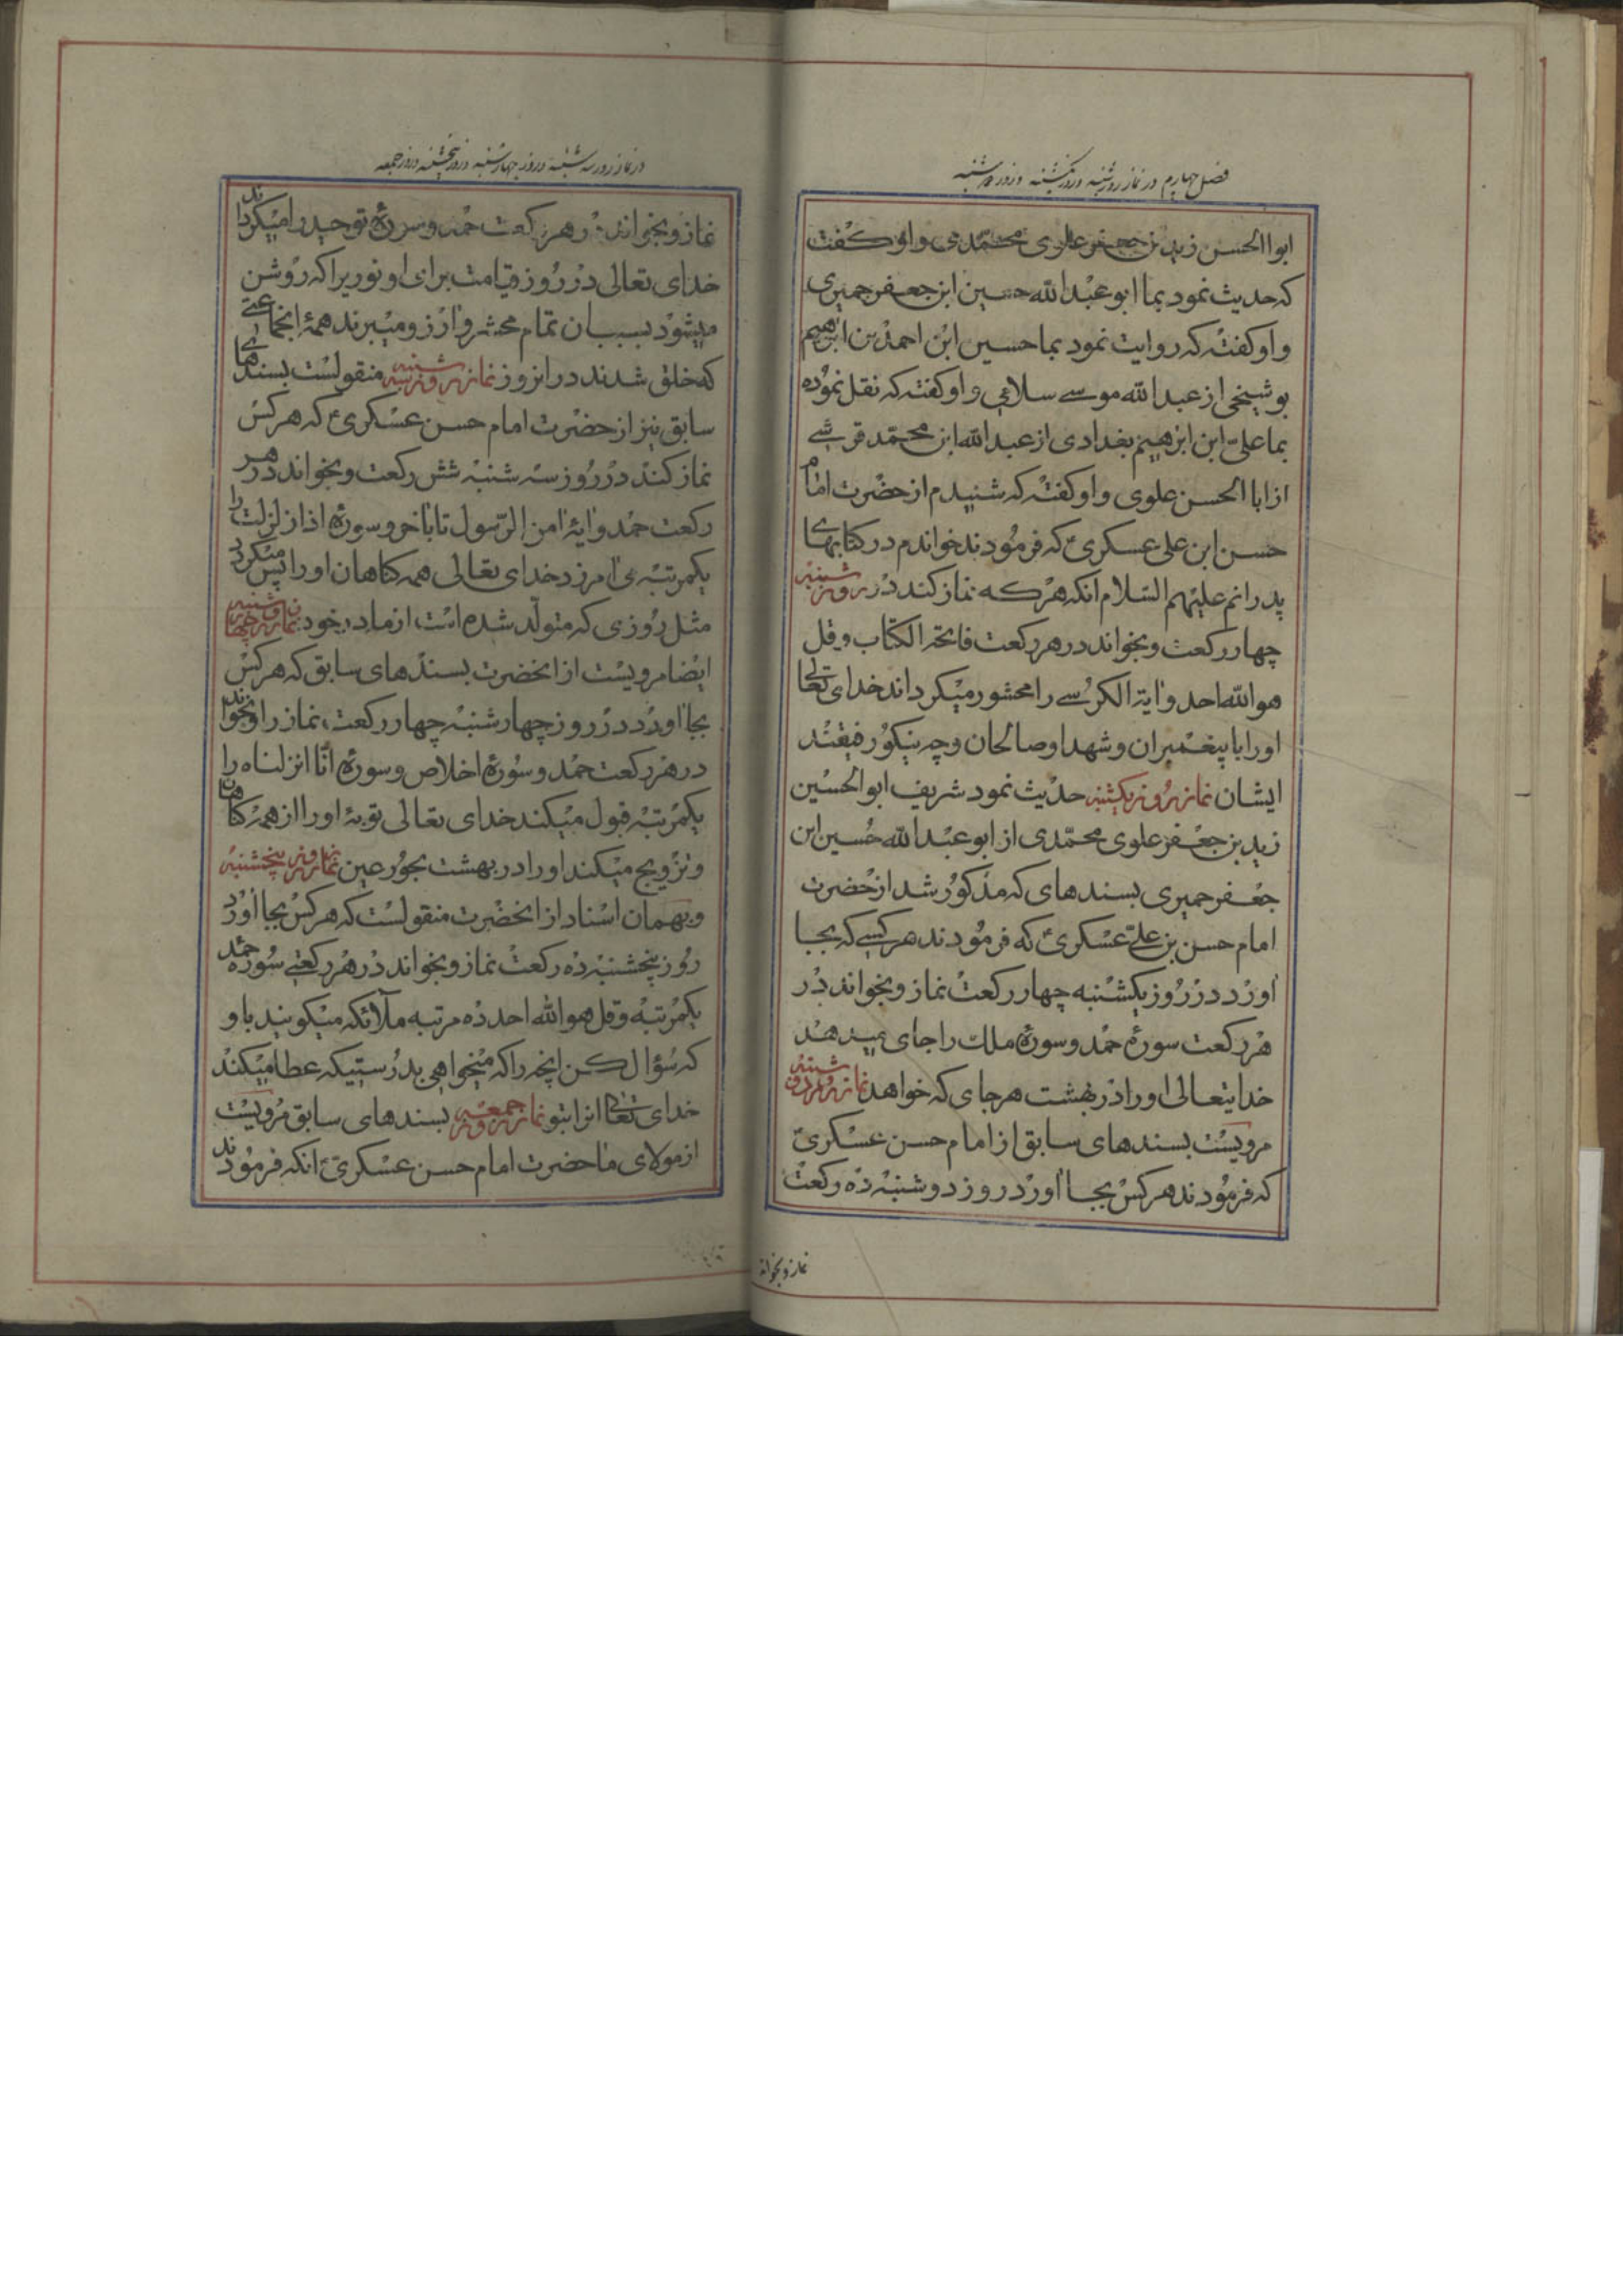 فصل چهارم در نماز روز شنبه و روز یکشنبه و روز دوشنبه
ابوا الحسن زید بن جعفر علوی محمّدی و او کفت
که حدیث نمود بما ابو عبد الله حسین ابن جعفر حمیری
و او کفته که روایت نمود بما حسین ابن احمد بن ابرهیم
بوشیخی از عبد الله موسی سلامی و او کفته که نقل نموده
بما علیّ ابن ابرهیم بغدادی از عبد الله ابن محمّد قرشی
از ابا الحسن علوی و او کفته که شنیدم از حضرت امام
حسن ابن علی عسکریّ که فرمودند خواندم در کتابهای
پدرانم علیهم السّلام انکه هر که نماز کند در روز شنبه
چهار رکعت و بخواند در هر رکعت فاتحة الکتاب و قل
هو الله احد و ایة الکرسی را محشور میکرداند خدای تعالی
او را با پیغمبران و شهدا و صالحان و چه نیکو رفیقند
ایشان نماز روز یکشنبه حدیث نمود شریف ابو الحسین
زید بن جعفر علوی محمّدی از ابو عبد الله حسین ابن
جعفر حمیری بسندهای که مذکور شد از حضرت
امام حسن بن علیّ عسکریّ که فرمودند هر کسی که بجا
اورد در روز یکشنبه چهار رکعت نماز و بخواند در
هر رکعت سورهٔ حمد و سورهٔ ملک را جای میدهد
خدایتعالی او را در بهشت هر جای که خواهد نماز روز دوشنبه
مرویست بسندهای سابق از امام حسن عسکریّ
که فرمودند هر کس بجا اورد روز دوشنبه ده رکعت
نماز و بخواند
در نماز روز سه شنبه و روز چهارشنبه و روز پنجشنبه و روز جمعه
نماز و بخواند در هر رکعت حمد و سورهٔ توحید را میکرداند
خدای تعالی در روز قیامت برای او نوریرا که روشن
میشود بسبب ان تمام محشر و ارزو میبرند همهٔ انجماعتی
که خلق شدند در انروز نماز روز سه شنبه منقولست بسندهای
سابق نیز از حضرت امام حسن عسکریّ که هر کس
نماز کند در روز سه شنبه شش رکعت و بخواند در هر
رکعت حمد و ایهٔ امن الرّسول تا باخر و سورهٔ اذا زلزلت را
یکمرتبه می امرزد خدای تعالی همه کناهان او را پس میکردد
مثل روزی که متولّد شده است از مادر خود نماز روز چهارشنبه
ایضا مرویست از انحضرت بسندهای سابق که هر کس
بجا اورد در روز چهارشنبه چهار رکعت نماز را و بخواند
در هر رکعت حمد و سورهٔ اخلاص و سورهٔ انّا انزلناه را
یکمرتبه قبول میکند خدای تعالی توبهٔ او را از همه کناهان
و تزویج میکند او را در بهشت بحور عین نماز روز پنجشنبه
و بهمان اسناد از انحضرت منقولست که هر کس بجا اورد
روز پنجشنبه ده رکعت نماز و بخواند در هر رکعتی سوره حمد
یکمرتبه و قل هو الله احد ده مرتبه ملآئکه میکویند باو
که سؤال کن انچه را که میخواهی بدرستیکه عطا میکند
خدای تعالی انرا بتو نماز روز جمعه بسندهای سابق مرویست
از مولای ما حضرت امام حسن عسکریّ انکه فرمودند